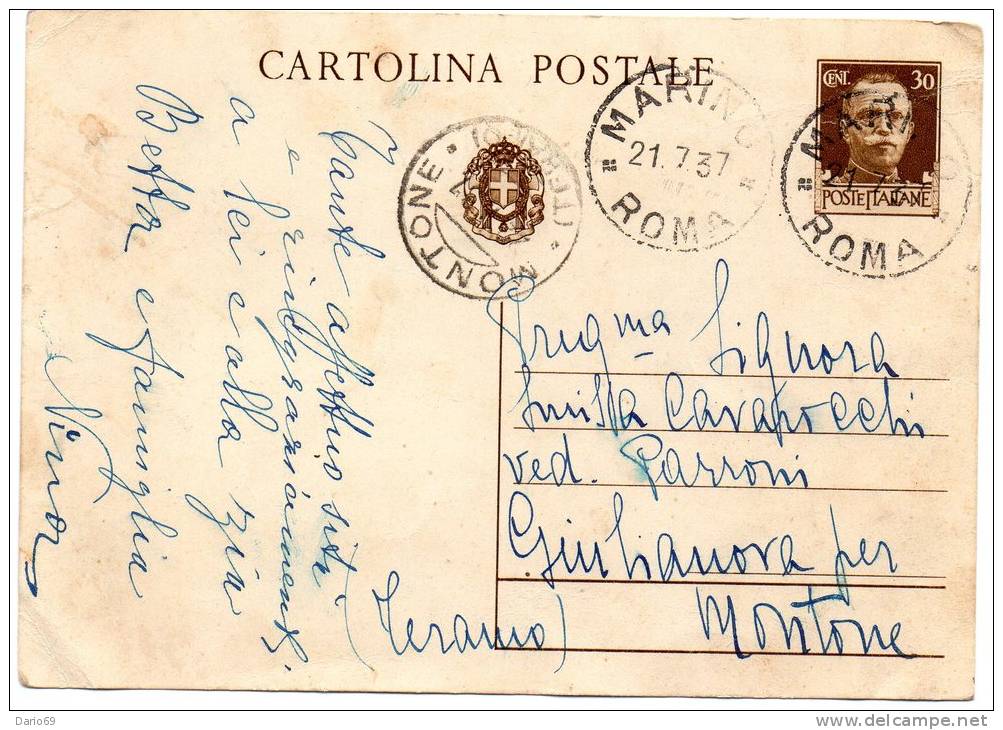 CARTOLINA POSTALE
CENT. 30
POSTE ITALIANE
MARINO
21.7.37
ROMA
MARINO
21.7.37
ROMA
MONTONE
(TERAMO)
Tante affettuosità
e ringraziamenti
a lei e alla zia
Betta e famiglia
Nino
Signora
Cavapocchi
ved. Parroni
Giulianova per
Montone
(Teramo)
Dario69
www.delcampe.net